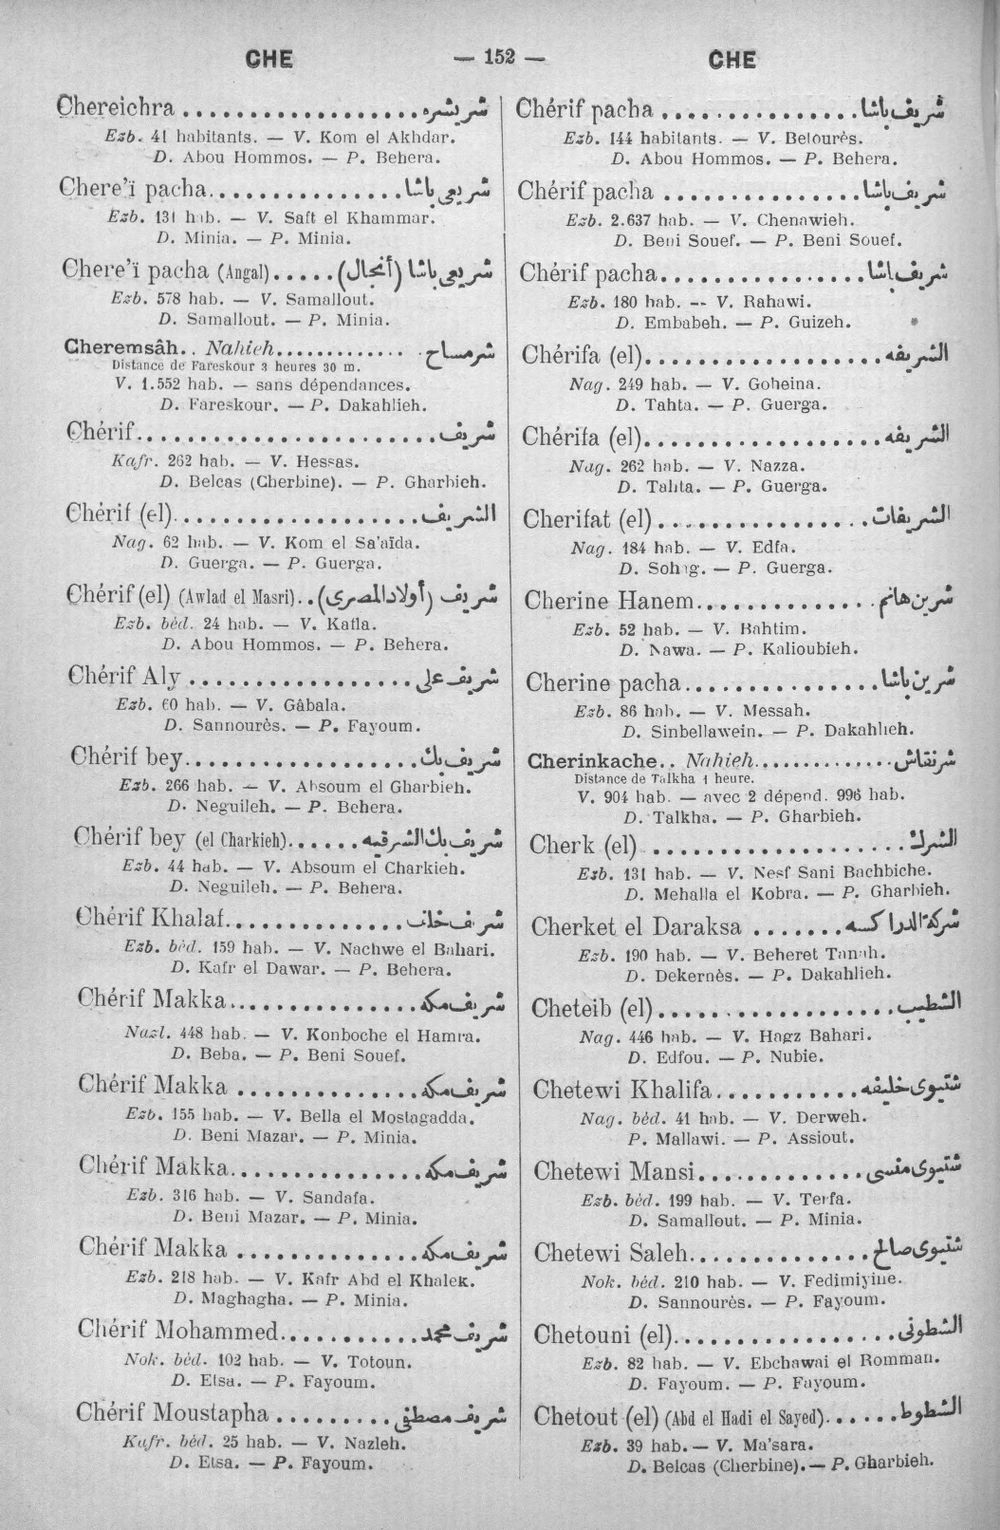 CHE — 152 — CHE
Chereichra .................. شريشره
Ezb. 41 habitants. — V. Kom el Akhdar.
D. Abou Hommos. — P. Behera.
Chere'ï pacha............... شريعى باشا
Ezb. 131 hab. — V. Saft el Khammar.
D. Minia. — P. Minia.
Chere'ï pacha (Angal)..... شريعى باشا (أنجال)
Ezb. 578 hab. — V. Samallout.
D. Samallout. — P. Minia.
Cheremsâh.. Nahieh............. شرمساح
Distance de Fareskour 3 heures 30 m.
V. 1.552 hab. — sans dépendances.
D. Fareskour. — P. Dakahlieh.
Chérif....................... شريف
Kafr. 262 hab. — V. Hessas.
D. Belcas (Cherbine). — P. Gharbieh.
Chérif (el).................. الشريف
Nag. 62 hab. — V. Kom el Sa'aïda.
D. Guerga. — P. Guerga.
Chérif (el) (Awlad el Masri).. شريف (أولاد المصرى)
Ezb. bèd. 24 hab. — V. Kafla.
D. Abou Hommos. — P. Behera.
Chérif Aly ................. شريف على
Ezb. 60 hab. — V. Gâbala.
D. Sannourès. — P. Fayoum.
Chérif bey.................. شريف بك
Ezb. 266 hab. — V. Absoum el Gharbieh.
D. Neguileh. — P. Behera.
Chérif bey (el Charkieh)...... شريف بك الشرقيه
Ezb. 44 hab. — V. Absoum el Charkieh.
D. Neguileh. — P. Behera.
Chérif Khalaf.............. شريف خلف
Ezb. bèd. 159 hab. — V. Nachwe el Bahari.
D. Kafr el Dawar. — P. Behera.
Chérif Makka.............. شريف مكه
Nazl. 448 hab. — V. Konboche el Hamra.
D. Beba. — P. Beni Souef.
Chérif Makka ............. شريف مكه
Ezb. 155 hab. — V. Bella el Mostagadda.
D. Beni Mazar. — P. Minia.
Chérif Makka.............. شريف مكه
Ezb. 316 hab. — V. Sandafa.
D. Beni Mazar. — P. Minia.
Chérif Makka ............. شريف مكه
Ezb. 218 hab. — V. Kafr Abd el Khalek.
D. Maghagha. — P. Minia.
Chérif Mohammed.......... شريف محمد
Nok. bèd. 102 hab. — V. Totoun.
D. Etsa. — P. Fayoum.
Chérif Moustapha ......... شريف مصطفى
Kafr. bèd. 25 hab. — V. Nazleh.
D. Etsa. — P. Fayoum.
Chérif pacha ............... شريف باشا
Ezb. 144 habitants. — V. Belourès.
D. Abou Hommos. — P. Behera.
Chérif pacha ............... شريف باشا
Ezb. 2.637 hab. — V. Chennwieh.
D. Beni Souef. — P. Beni Souef.
Chérif pacha............... شريف باشا
Ezb. 180 hab. -- V. Rahawi.
D. Embabeh. — P. Guizeh.
Chérifa (el).................. الشريفه
Nag. 249 hab. — V. Goheina.
D. Tahta. — P. Guerga.
Chérifa (el).................. الشريفه
Nag. 262 hab. — V. Nazza.
D. Tahta. — P. Guerga.
Cherifat (el)................ الشريفات
Nag. 184 hab. — V. Edfa.
D. Sohag. — P. Guerga.
Cherine Hanem.............. شرين هانم
Ezb. 52 hab. — V. Bahtim.
D. Nawa. — P. Kalioubieh.
Cherine pacha.............. شرين باشا
Ezb. 86 hab. — V. Messah.
D. Sinbellawein. — P. Dakahlieh.
Cherinkache.. Nahieh............. شرنقاش
Distance de Talkha 1 heure.
V. 904 hab. — avec 2 dépend. 996 hab.
D. Talkha. — P. Gharbieh.
Cherk (el) ................... الشرك
Ezb. 131 hab. — V. Nesf Sani Bachbiche.
D. Mehalla el Kobra. — P. Gharbieh.
Cherket el Daraksa ....... شركة الدراكسه
Ezb. 190 hab. — V. Beheret Tanah.
D. Dekernès. — P. Dakahlieh.
Cheteib (el).................. الشطيب
Nag. 446 hab. — V. Hagz Bahari.
D. Edfou. — P. Nubie.
Chetewi Khalifa........... شتيوى خليفه
Nag. bèd. 41 hab. — V. Derweh.
P. Mallawi. — P. Assiout.
Chetewi Mansi............ شتيوى منسى
Ezb. bèd. 199 hab. — V. Terfa.
D. Samallout. — P. Minia.
Chetewi Saleh............. شتيوى صالح
Nok. bèd. 210 hab. — V. Fedimiyine.
D. Sannourès. — P. Fayoum.
Chetouni (el)................ الشطونى
Ezb. 82 hab. — V. Ebchawai el Romman.
D. Fayoum. — P. Fayoum.
Chetout (el) (Abd el Hadi el Sayed)...... الشطوط
Ezb. 39 hab. — V. Ma'sara.
D. Belcas (Cherbine). — P. Gharbieh.